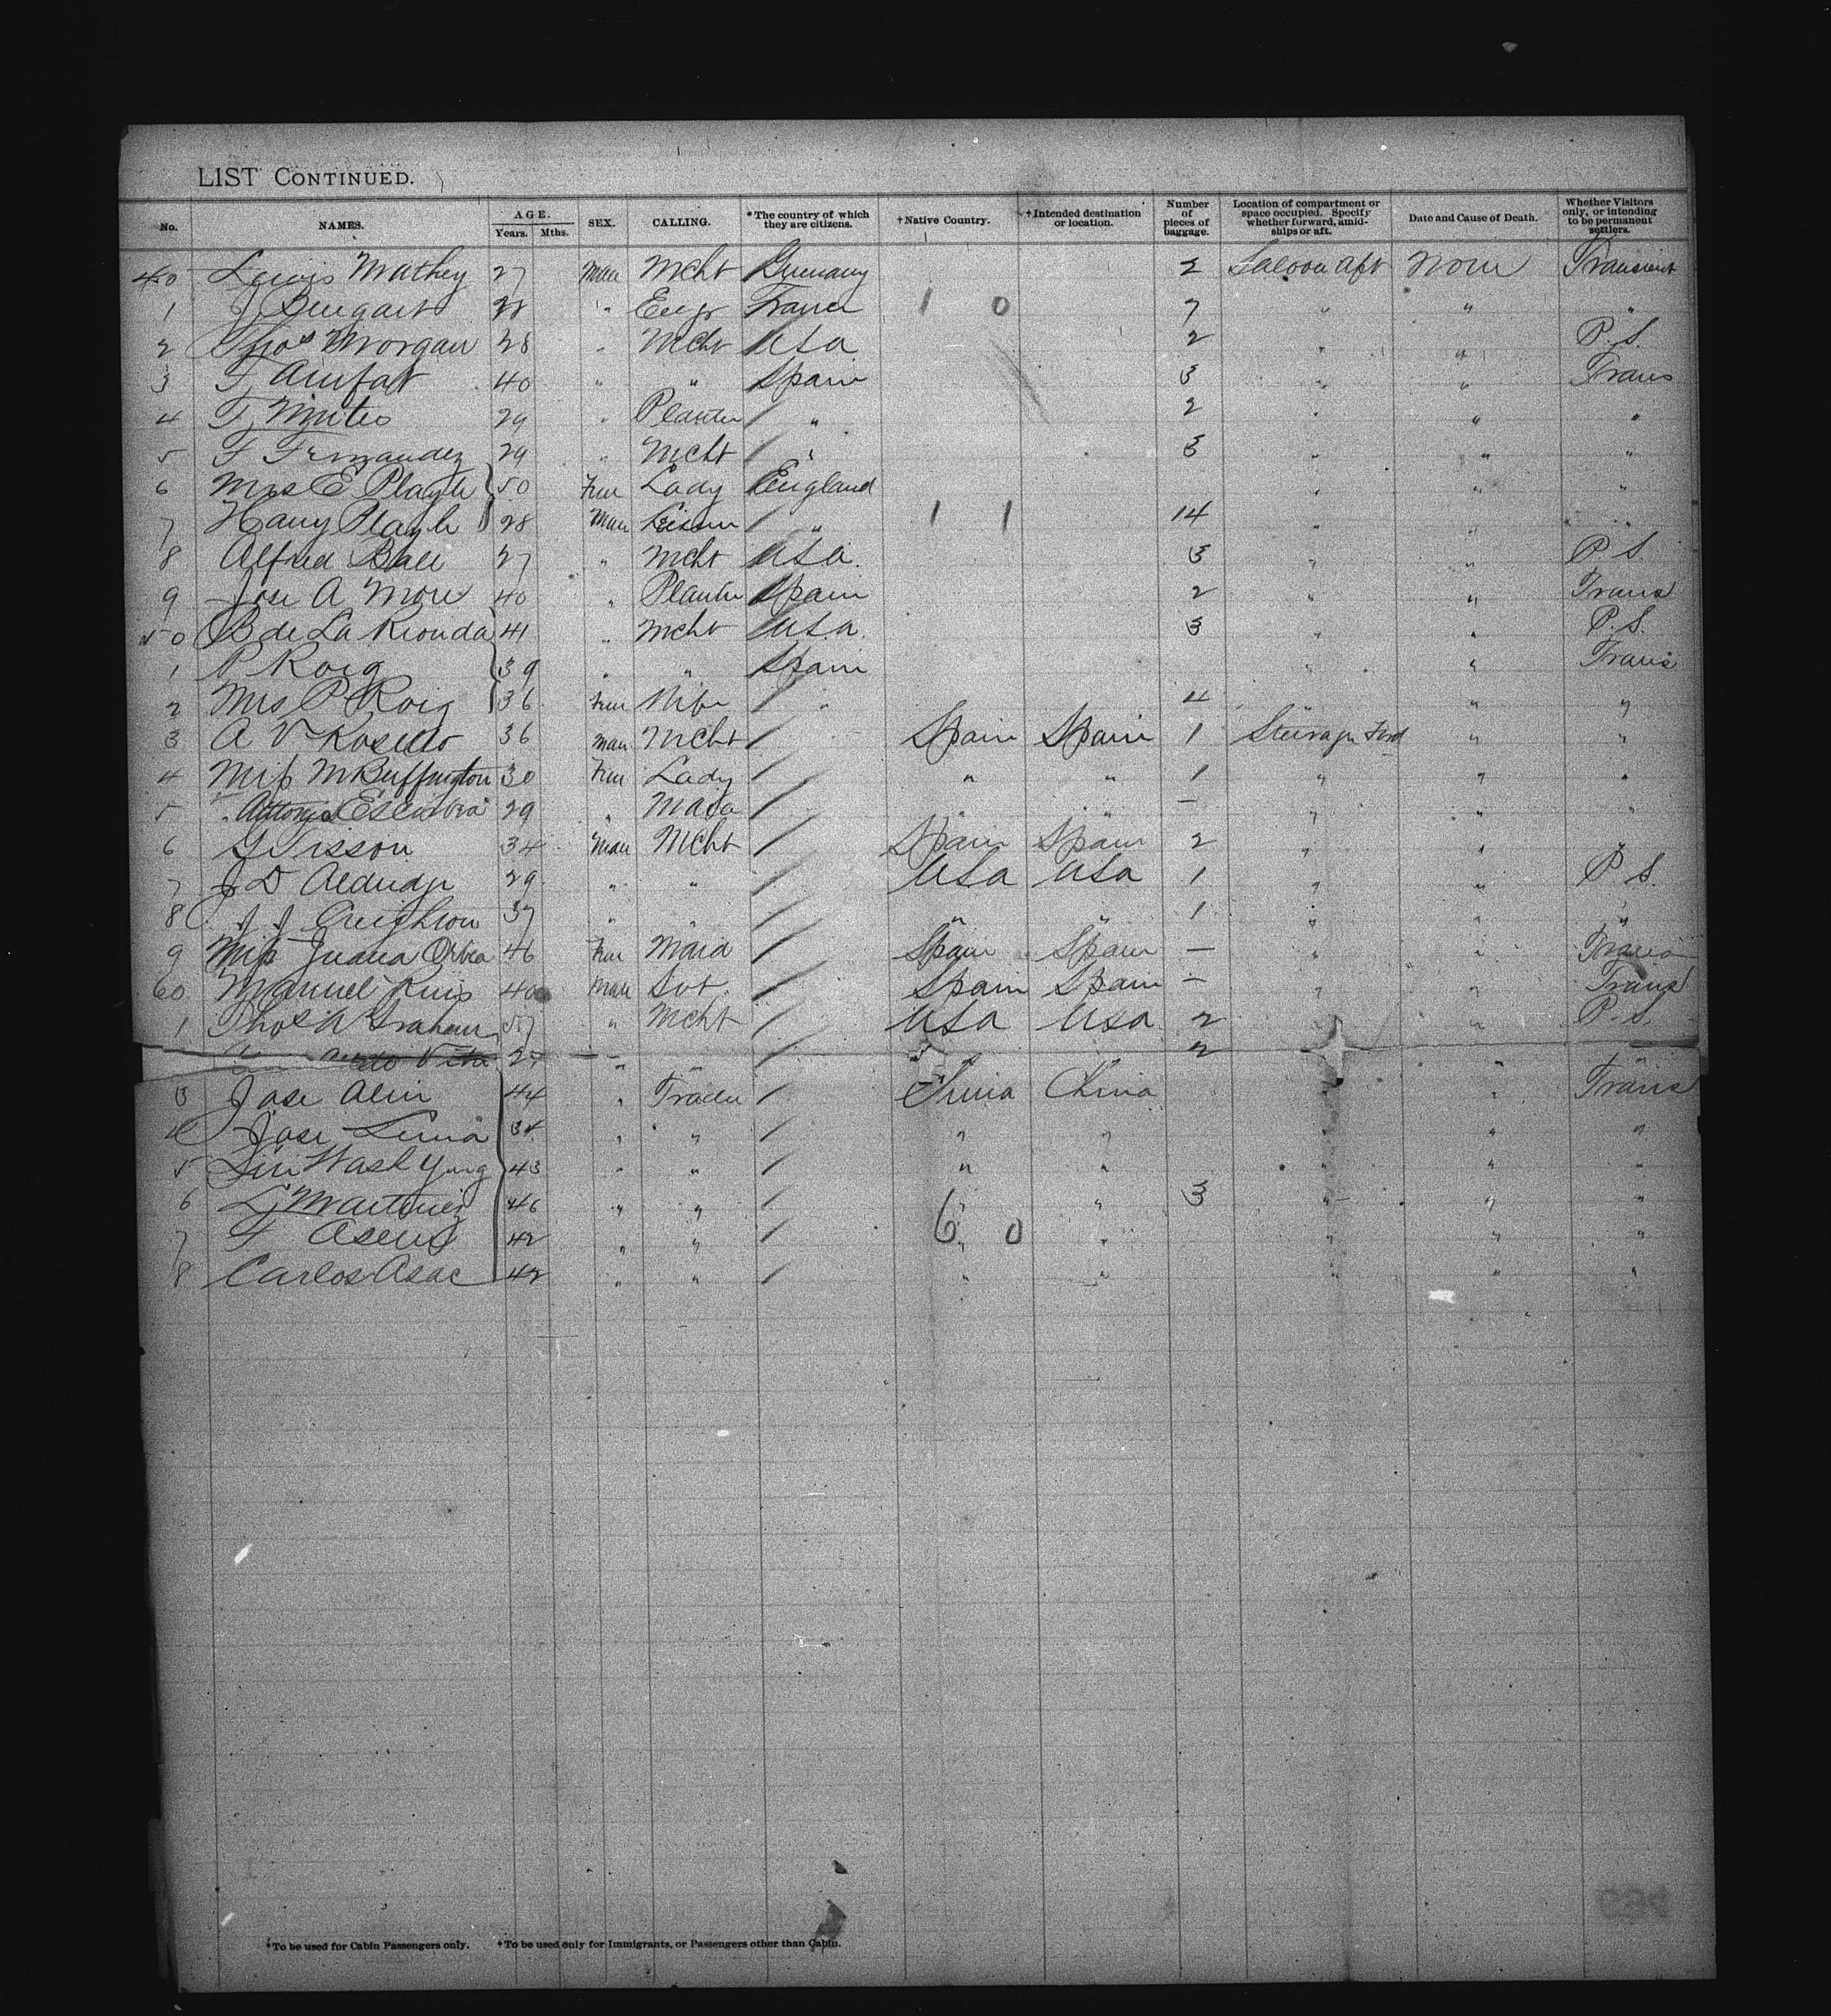 LIST CONTINUED.
No. NAMES. AGE. Years. Mths. SEX. CALLING. *The country of which they are citizens. †Native Country. †Intended destination or location. Number of pieces of baggage. Location of compartment or space occupied. Specify whether forward, amidships or aft. Date and Cause of Death. Whether Visitors only, or intending to be permanent settlers.
40 Lewis Mathey 27 Male Mcht Germany 2 Saloon aft None Transient
1 J 28 " Engr France 1 0 7 " " "
2 Thos Morgan 28 " Mcht USA 2 " " P.S.
3 F 40 " " Spain 3 " " Trans
4 F 29 " Planter / " 2 " " "
5 F Fernandez 29 " Mcht / " 3 " " "
6 Mrs E 50 Fem Lady England " " "
7 Harry 28 Male / " 1 1 14 " " "
8 Alfred Ball 27 " Mcht USA. 3 " " P S.
9 Jose A 40 " Planter Spain 2 " " Trans
50 B de La Rionda 41 " Mcht U.S.a. 3 " " P.S.
1 P Roig 39 " " Spain " " Trans
2 Mrs P Roig 36 Fem Wife / " 4 " "
3 A V 36 Male Mcht / Spain Spain 1 Steerage Ford " "
4 Miss M Buffington 30 Fem Lady / " " 1 " " "
5 29 " Maid / " " — " " "
6 G 34 Male Mcht / Spain Spain 2 " " "
7 J D 29 " " / USA USA 1 " " P S.
8 J J Creighton 37 " " / " " 1 " " "
9 Miss Juana 46 Fem Maid / Spain Spain — " " Trans
60 Manuel Ruis 40 Male Svt. / Spain Spain — " " Trans
1 Thos A Graham 57 " Mcht / USA USA 2 " P.S.
2
3 Jose 44 " Trader / China China " Trans
4 Jose 34 " " / " " " " "
5 43 " " / " " " " "
6 L Martinez 46 " " / " " 3 " " "
7 F 42 " " / 6 0 " " " " "
8 Carlos Asac 42 " " / " " " " "
*To be used for Cabin Passengers only. †To be used only for Immigrants, or Passengers other than Cabin.